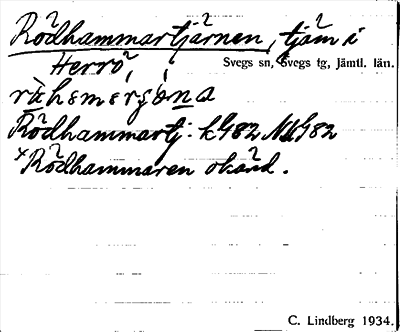 Rödhammartjärnen, tjärn i
Herrö, Svegs sn, Svegs tg, Jämtl. län.
Rödhammartj. kG82 NVG82
*Rödhammaren okänd.
C. Lindberg 1934.